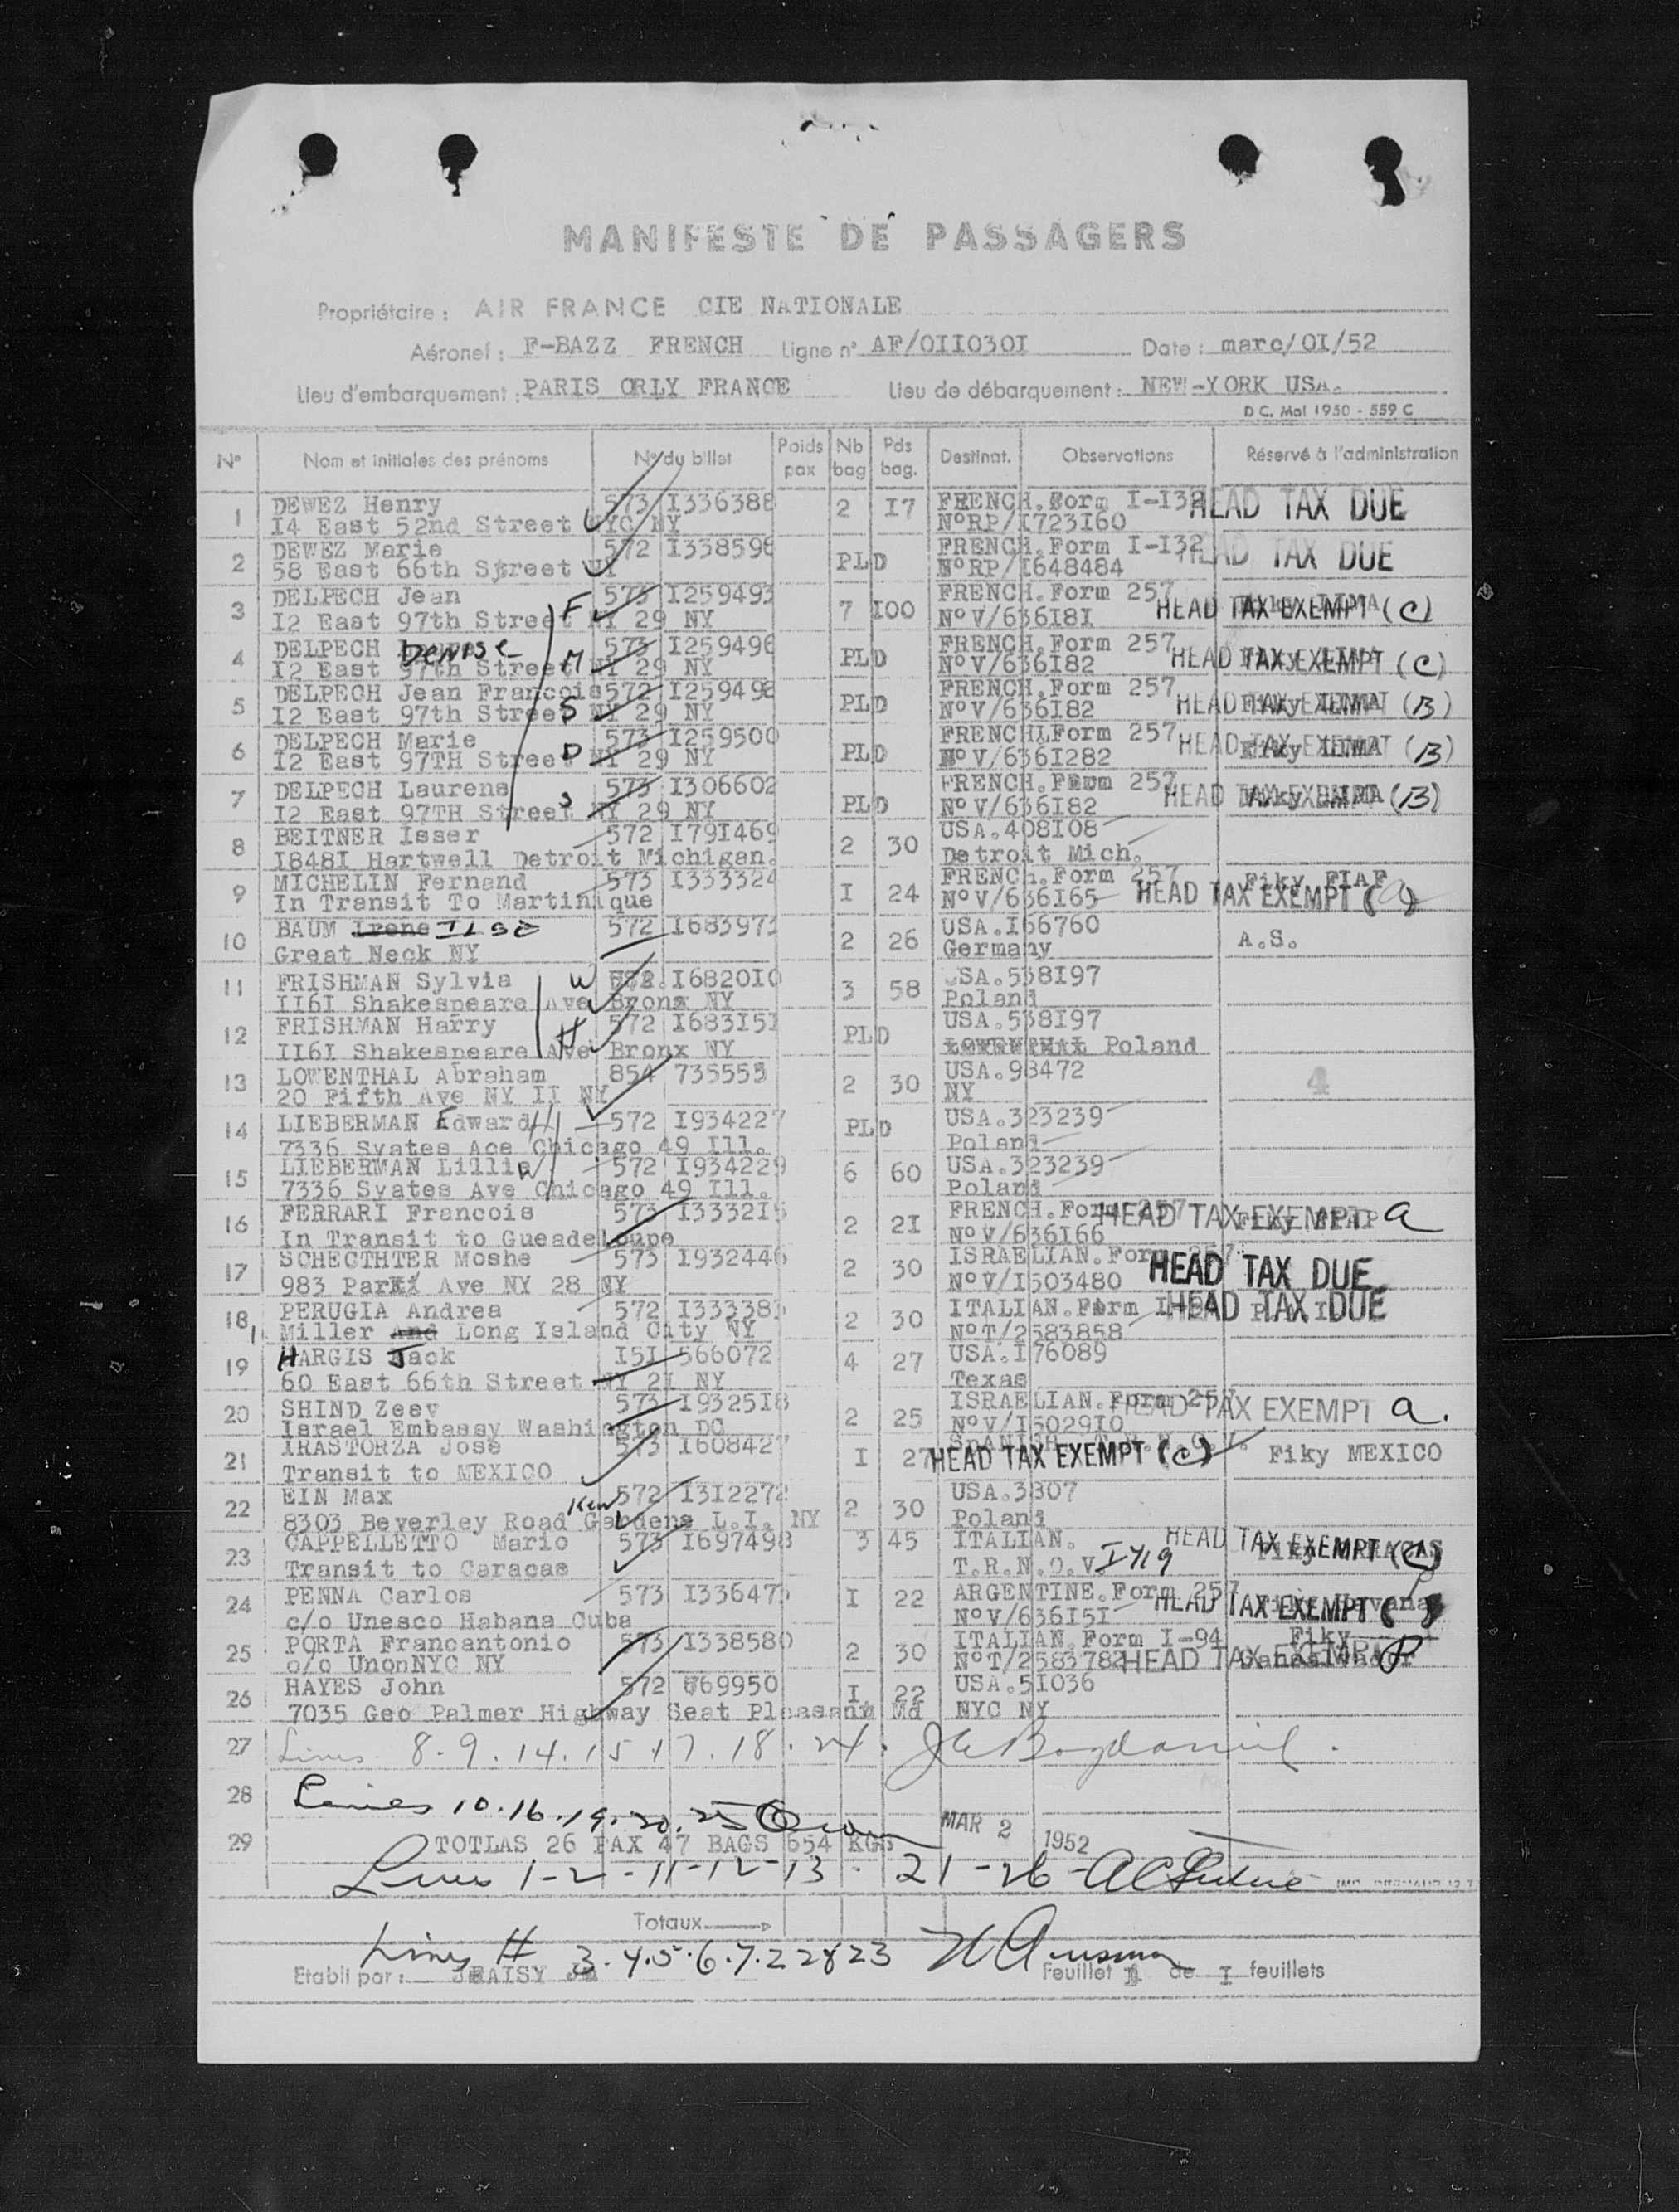 MANIFESTE DE PASSAGERS
Propriétaire : AIR FRANCE CIE NATIONALE
Aéronef : F-BAZZ FRENCH Ligne n° AF/OIIO3OI Date : marc/OI/52
Lieu d'embarquement : PARIS ORLY FRANCE Lieu de débarquement : NEW-YORK USA.
D C. Mal 1950 - 559 C
N° Nom et initiales des prénoms N° du billet Poids pax Nb bag Pds bag. Destinat. Observations Réservé à l'administration
1 DEWEZ Henry 573 I336388 2 I7 FRENCH.Form I-I32 HEAD TAX DUE
I4 East 52nd Street NYC NY N°RP/I723I60
2 DEWEZ Marie 572 I338596 PLD FRENCH.Form I-I32 HEAD TAX DUE
58 East 66th Street NY N°RP/I648484
3 DELPECH Jean F 573 I259493 7 I00 FRENCH.Form 257 HEAD TAX EXEMPT (C)
I2 East 97th Street NY 29 NY N°V/636I8I
4 DELPECH Denise M 573 I259496 PLD FRENCH.Form 257 HEAD TAX EXEMPT (C)
I2 East 97th Street NY 29 NY N°V/636I82
5 DELPECH Jean Francois 572 I259498 PLD FRENCH.Form 257 HEAD TAX EXEMPT (B)
I2 East 97th Street S NY 29 NY N°V/636I82
6 DELPECH Marie D 573 I259500 PLD FRENCH.Form 257 HEAD TAX EXEMPT (B)
I2 East 97TH Street NY 29 NY N°V/636I282
7 DELPECH Laurens S 573 I306602 PLD FRENCH.Form 257 HEAD TAX EXEMPT (B)
I2 East 97TH Street NY 29 NY N°V/636I82
8 BEITNER Isser 572 I79I469 2 30 USA.408I08
I848I Hartwell Detroit Michigan. Detroit Mich.
9 MICHELIN Fernand 573 I333324 I 24 FRENCH.Form 257 Fiky FIAF
In Transit To Martinique N°V/636I65 HEAD TAX EXEMPT (a)
10 BAUM Irene ILSE 572 I683973 2 26 USA.I66760 A.S.
Great Neck NY Germany
11 FRISHMAN Sylvia W I6820I0 3 58 USA.538I97
II6I Shakespeare Ave Bronx NY Poland
12 FRISHMAN Harry H 572 I683I51 PLD USA.538I97
II6I Shakespeare Ave Bronx NY Poland
13 LOWENTHAL Abraham 854 735555 2 30 USA.98472 4
20 Fifth Ave NY II NY NY
14 LIEBERMAN Edward H 572 I934227 PLD USA.323239
7336 Syates Ace Chicago 49 Ill. Poland
15 LIEBERMAN Lillia W 572 I934229 6 60 USA.323239
7336 Syates Ave Chicago 49 Ill. Poland
16 FERRARI Francois 573 I3332I5 2 2I FRENCH.Form 257 HEAD TAX EXEMPT a
In Transit to Gueadeloupe N°V/636I66
17 SCHECTHTER Moshe 573 I932446 2 30 ISRAELIAN.Form 257
983 Park Ave NY 28 NY N°V/I503480 HEAD TAX DUE
18 PERUGIA Andrea 572 I333383 2 30 ITALIAN.Form HEAD TAX DUE
Miller and Long Island City NY N°T/2583858
19 HARGIS Jack I5I 566072 4 27 USA.I76089
60 East 66th Street NY 2I NY Texas
20 SHIND Zeev 573 I9325I8 2 25 ISRAELIAN.Form 257 HEAD TAX EXEMPT a.
Israel Embassy Washington DC N°V/I5029I0
21 IRASTORZA Jose 573 I608427 I 27 HEAD TAX EXEMPT (C) Fiky MEXICO
Transit to MEXICO
22 EIN Max 572 I3I2272 2 30 USA.3807
8303 Beverley Road Kew Gardens L.I. NY Poland
23 CAPPELLETTO Mario 573 I697498 3 45 ITALIAN. HEAD TAX EXEMPT (C)
Transit to Caracas T.R.N.O.V. I 419
24 PENNA Carlos 573 I336475 I 22 ARGENTINE.Form 257
c/o Unesco Habana Cuba N°V/636I5I HEAD TAX EXEMPT
25 PORTA Francantonio 573 I338580 2 30 ITALIAN.Form I-94 Fiky
o/o UnonNYC NY N°T/2583782 HEAD TAX EXEMPT
26 HAYES John 572 669950 I 22 USA.5I036
7035 Geo Palmer Highway Seat Pleasant Md NYC NY
27 Lines 8.9.14.15 17.18.24.
28 Lines 10.16.19.20.25
MAR 2 1952
29 TOTLAS 26 PAX 47 BAGS 654 KGS
Lines 1-2-11-12-13. 21-26-
Totaux
Lines # 3.4.5.6.7.22&23
Etabli par : Feuillet I de I feuillets